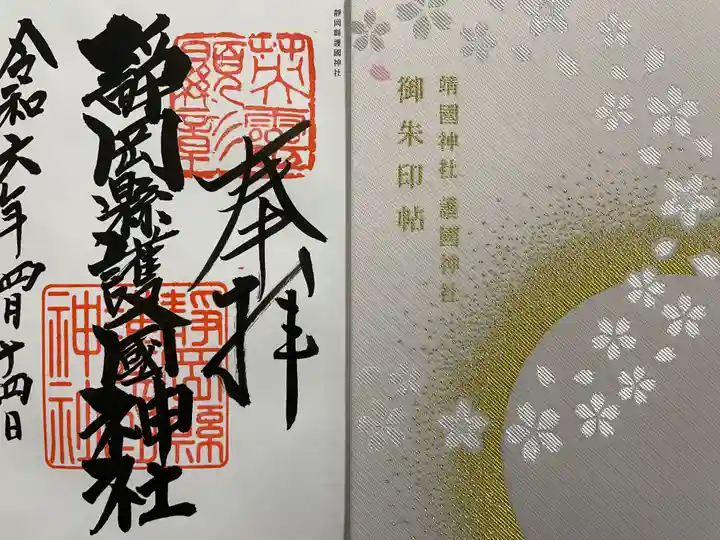 靜岡縣護國神社
奉拝
英霊顕彰
靜岡縣護國神社
靜岡縣護國神社
令和六年四月十四日
靖國神社 護國神社
御朱印帖